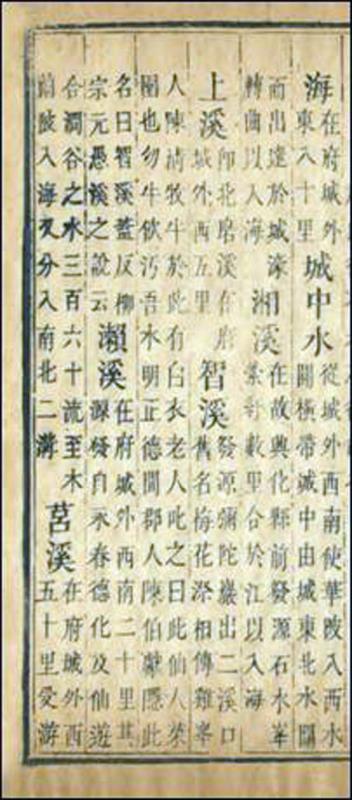 海在府城外東八十里城中水從城外西南使華陂入西水關橫帶城中由城東北水關
而出達於城濠轉曲以入海湘溪在故興化縣前發源石水峯縈紆數里合於江以入海
上溪即北磨溪在府城外西五里智溪發源彌陀巖出二溪口舊名梅花漈相傳雞峯
人陳牧牛於此有白衣老人叱之曰此仙人菜圃也勿牛飲污吾水明正德間郡人陳伯獻隱此
名曰智溪蓋反柳宗元愚溪之說云瀨溪在府城外西南二十里其源發自永春德化及仙遊
合澗谷之水三百六十流至木蘭陂入海又分入南北二溝莒溪在府城外西五十里受游